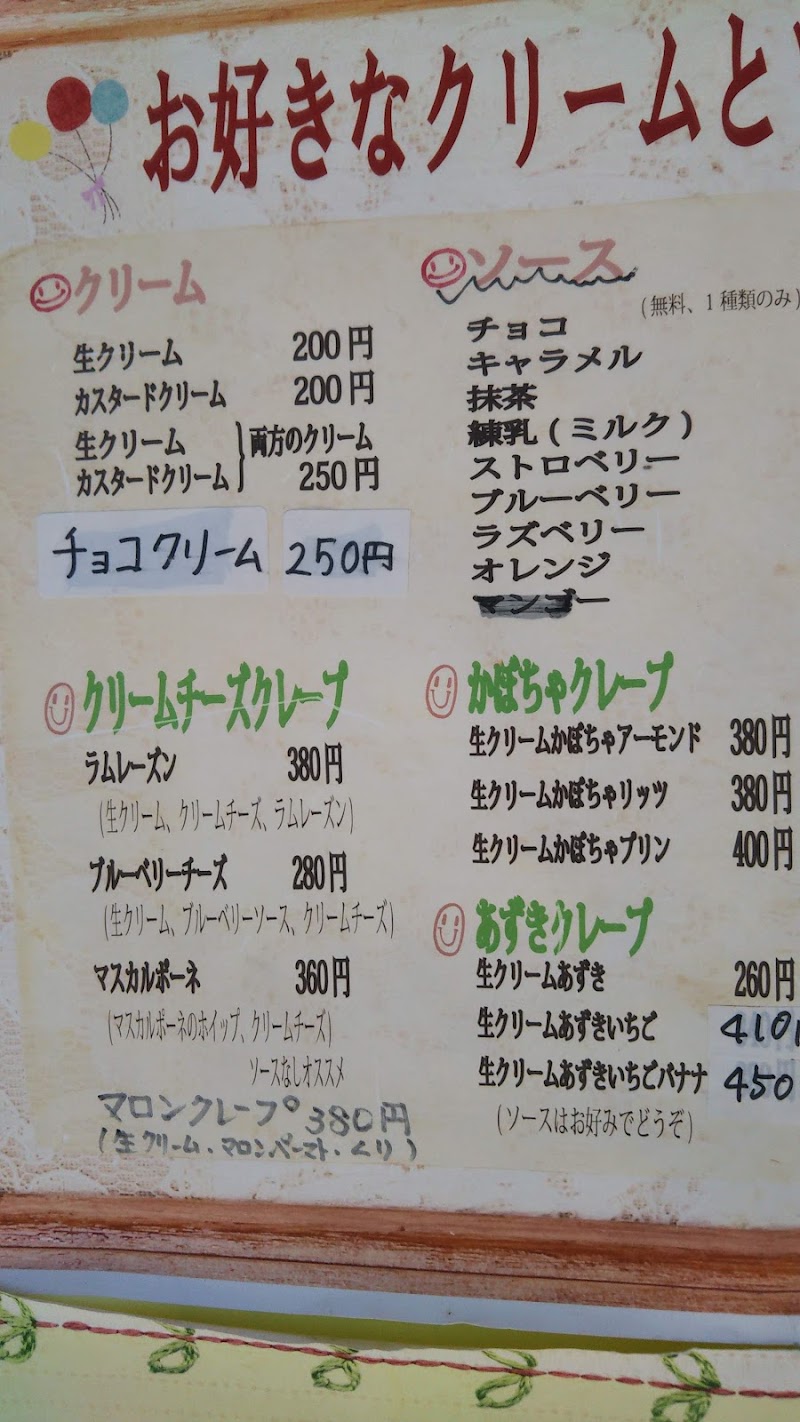 お好きなクリームと
クリーム
生クリーム 200円
カスタードクリーム 200円
生クリーム
カスタードクリーム
両方のクリーム
250円
チョコクリーム 250円
ソース
(無料、1種類のみ)
チョコ
キャラメル
抹茶
練乳(ミルク)
ストロベリー
ブルーベリー
ラズベリー
オレンジ
マンゴー
クリームチーズクレープ
ラムレーズン 380円
(生クリーム、クリームチーズ、ラムレーズン)
ブルーベリーチーズ 280円
(生クリーム、ブルーベリーソース、クリームチーズ)
マスカルポーネ 360円
(マスカルポーネのホイップ、クリームチーズ)
ソースなしオススメ
マロンクレープ 380円
(生クリーム・マロンペースト・くり)
かぼちゃクレープ
生クリームかぼちゃアーモンド 380円
生クリームかぼちゃリッツ 380円
生クリームかぼちゃプリン 400円
あずきクレープ
生クリームあずき 260円
生クリームあずきいちご 410
生クリームあずきいちごバナナ 450
(ソースはお好みでどうぞ)